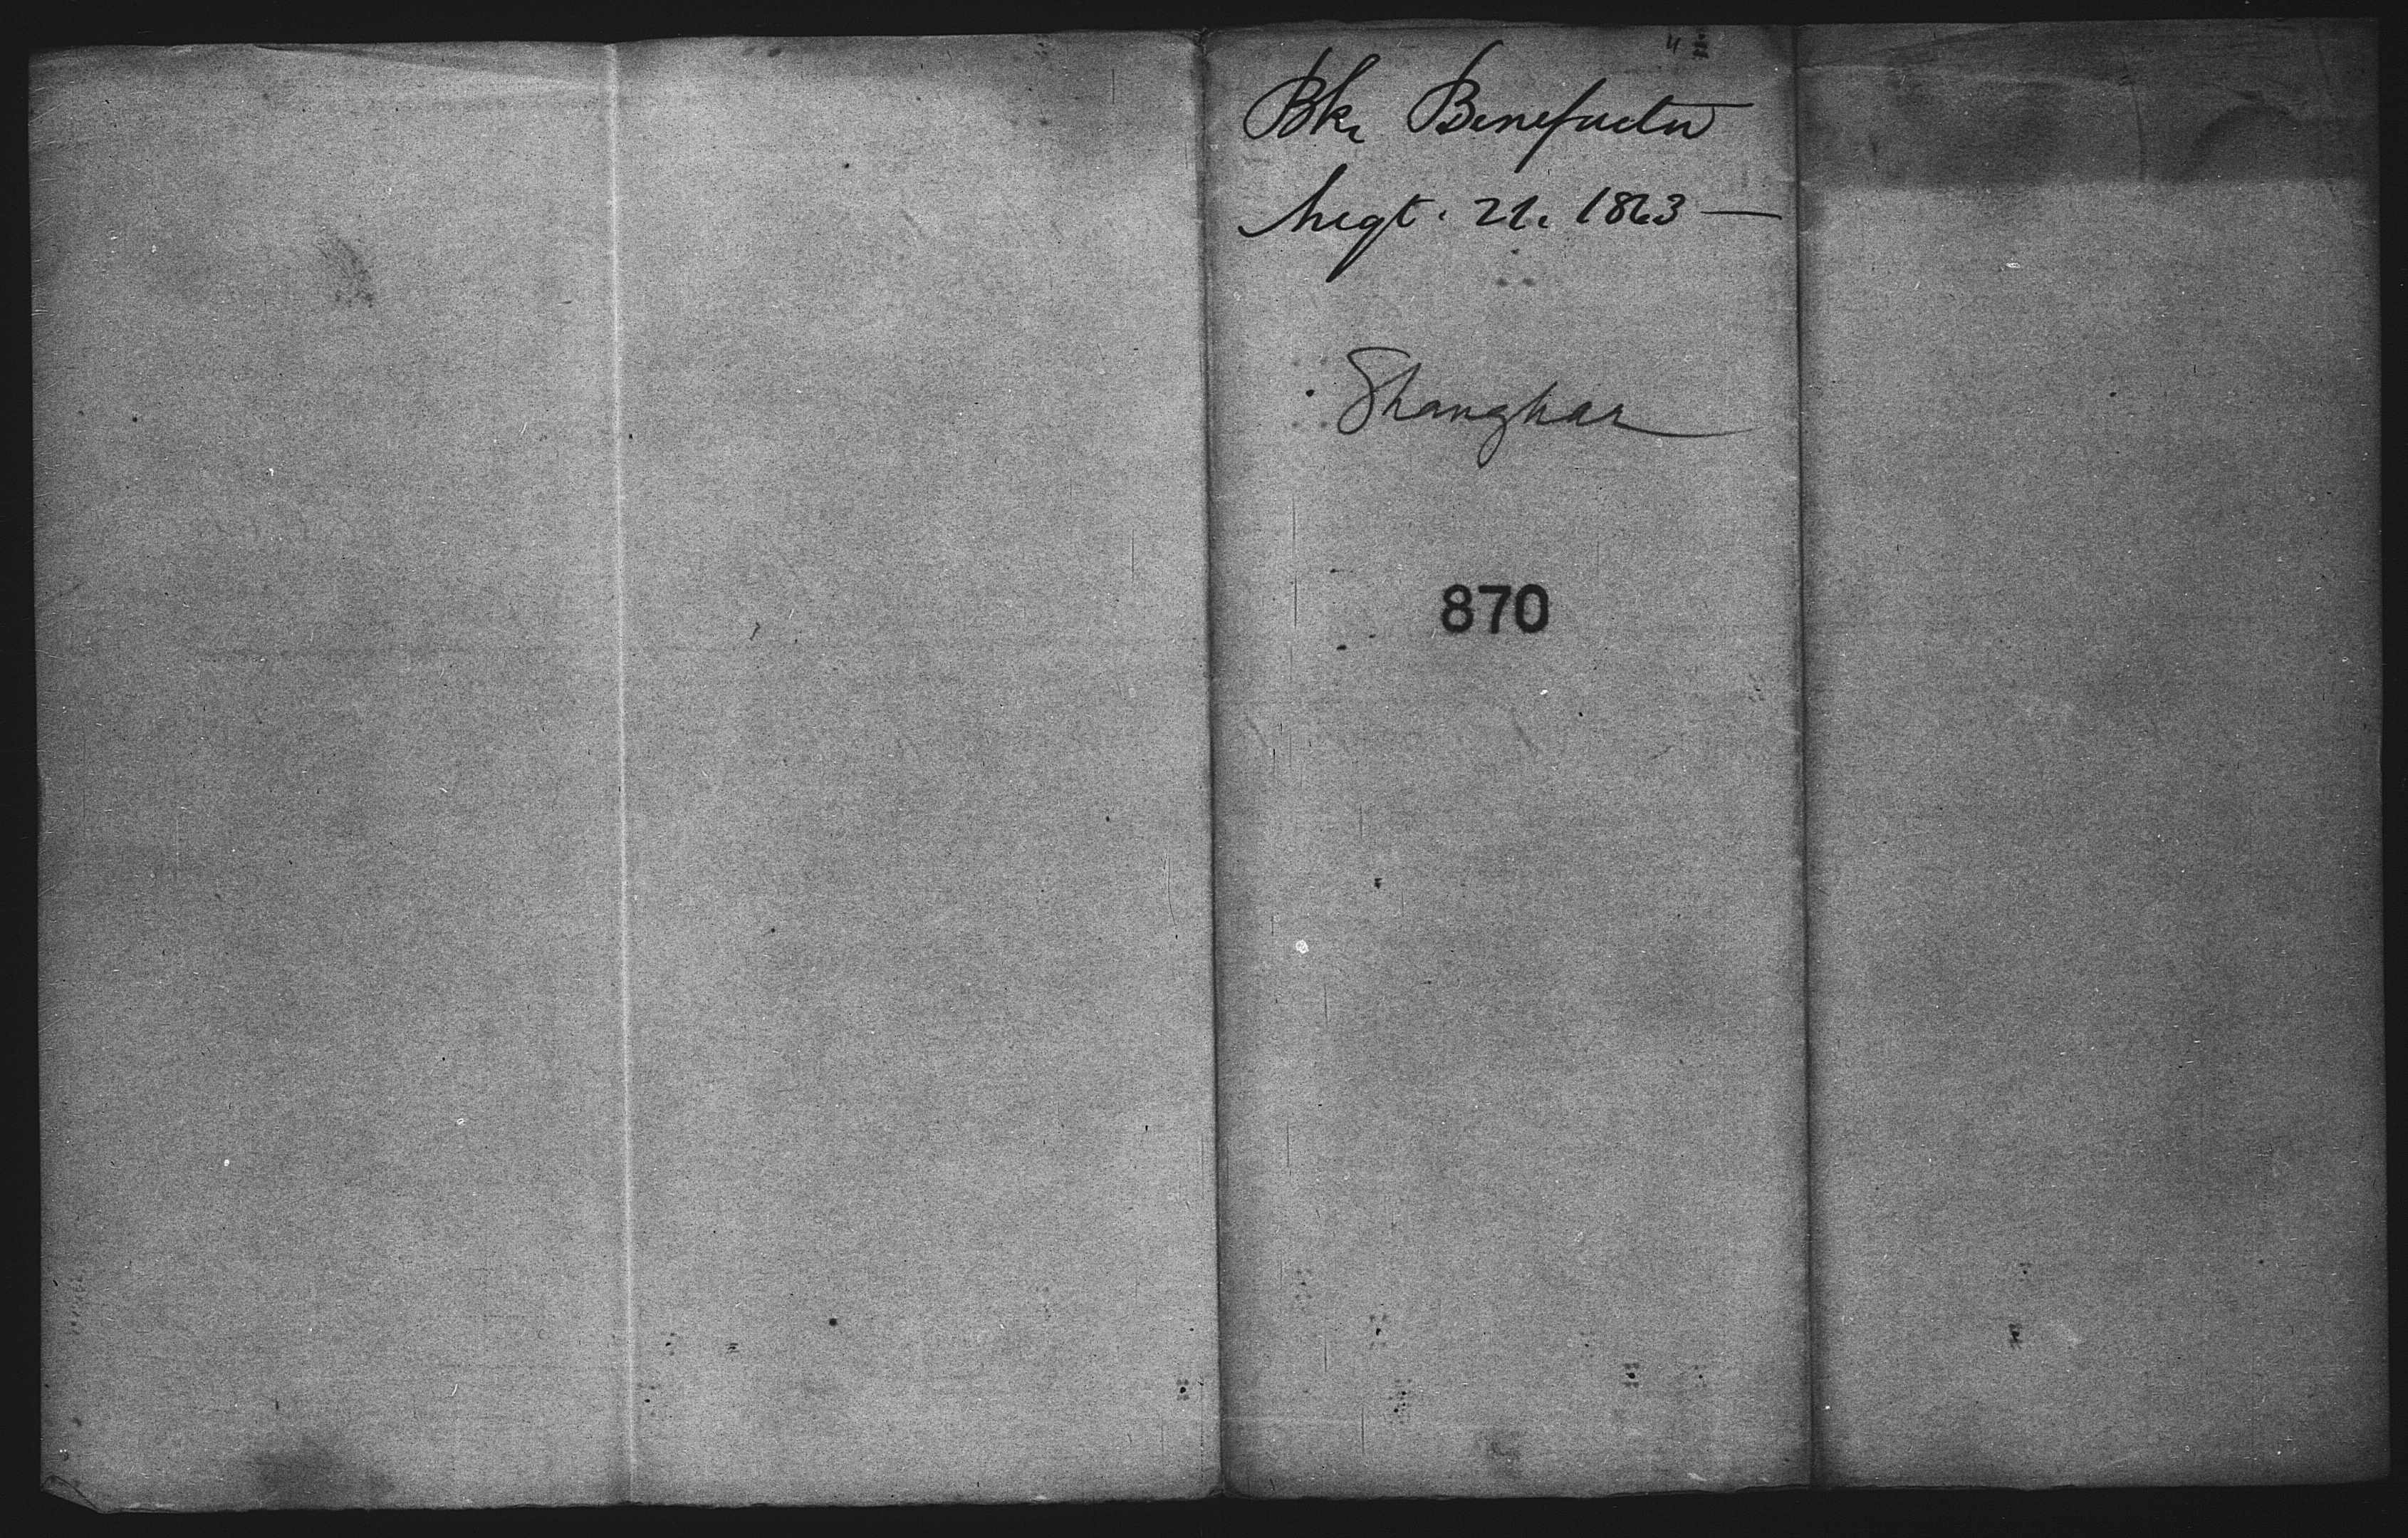 Bk. Benefactor
Augt. 21. 1863 —
Shanghai
870